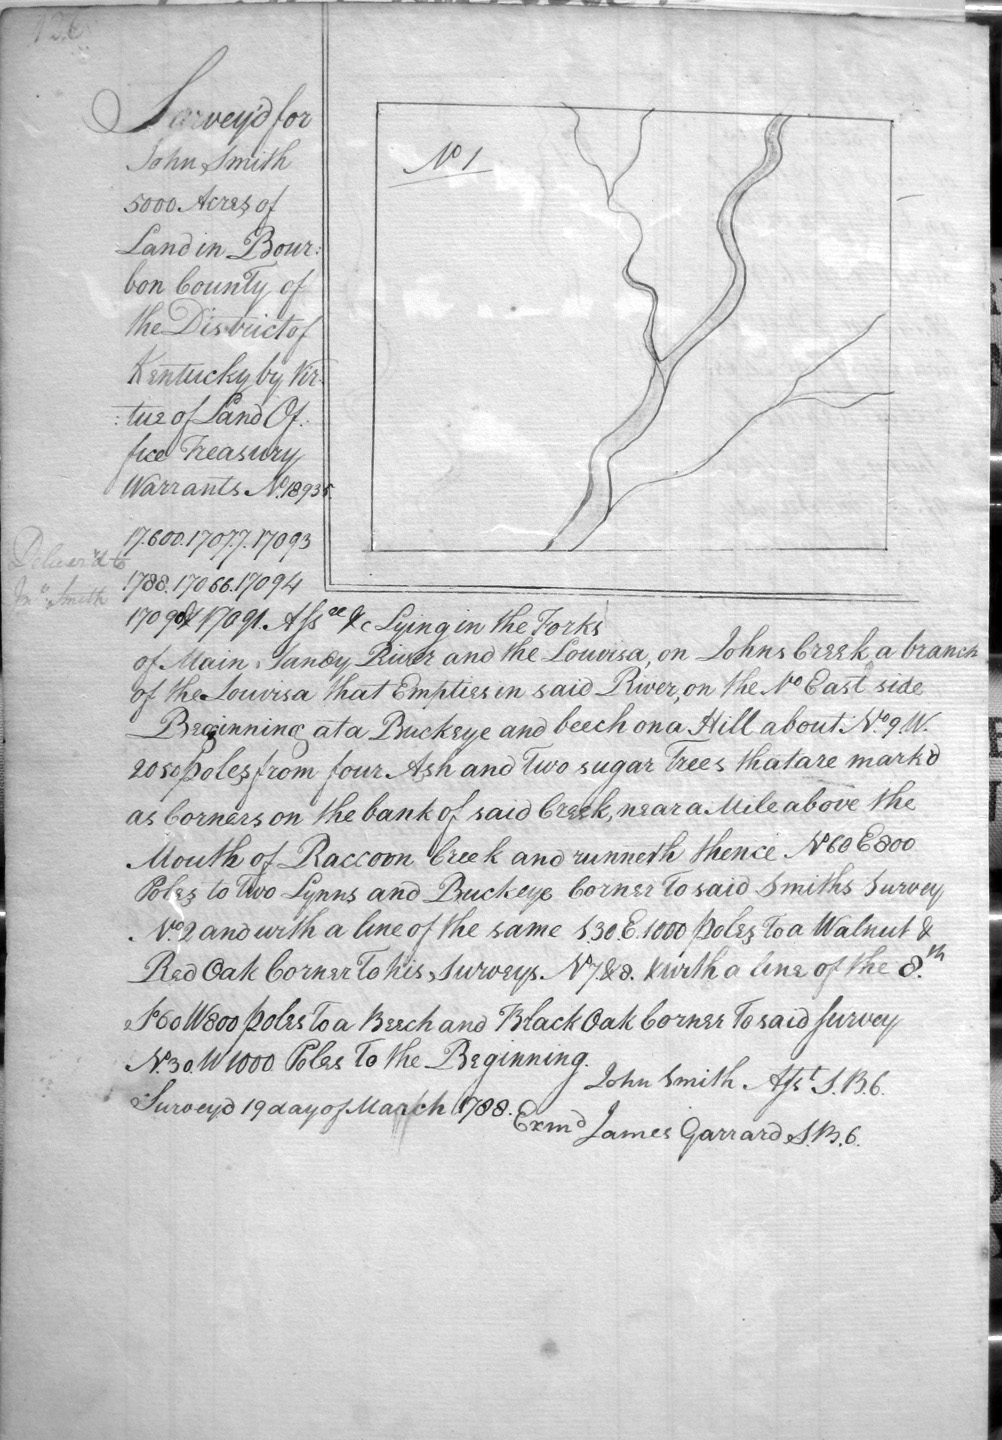 126
Survey'd for
John Smith
5000 Acres of
Land in Bour:
bon County of
the District of
Kentucky by Vir:
:tue of Land Of:
fice Treasury
Warrants No. 18935.
17.600.17077.17093
1788.17066.17094
1709 & 17091. Assee &c Lying in the Forks
Deliver'd to
Jno. Smith
No 1
of Main Sandy River and the Louvisa, on Johns Creek a branch
of the Louvisa that Empties in said River, on the No East side
Beginning at a Buckeye and beech on a Hill about No. 9 W.
2050 poles from four Ash and Two sugar Trees that are mark'd
as Corners on the bank of said Creek, near a Mile above the
Mouth of Raccoon Creek and runneth thence N60 E800
Poles to Two Lynns and Buckeye Corner To said Smiths Survey
No 2 and with a line of the same S30.E.1000 poles To a Walnut &
Red Oak Corner To his Surveys. No 7.&8. & with a line of the 8.th
S60 W800 poles To a Beech and Black Oak Corner To said survey
N.30.W 1000 Poles To the Beginning.
John Smith Asst S.B.C.
Surveyd 19 day of March 1788.
Exmd James Garrard S.B.C.